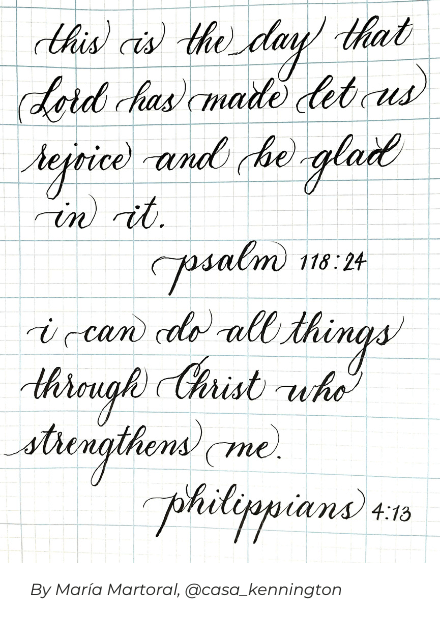 this is the day that
Lord has made let us
rejoice and be glad
in it.
psalm 118:24
i can do all things
through Christ who
strengthens me.
philippians 4:13
By María Martoral, @casa_kennington